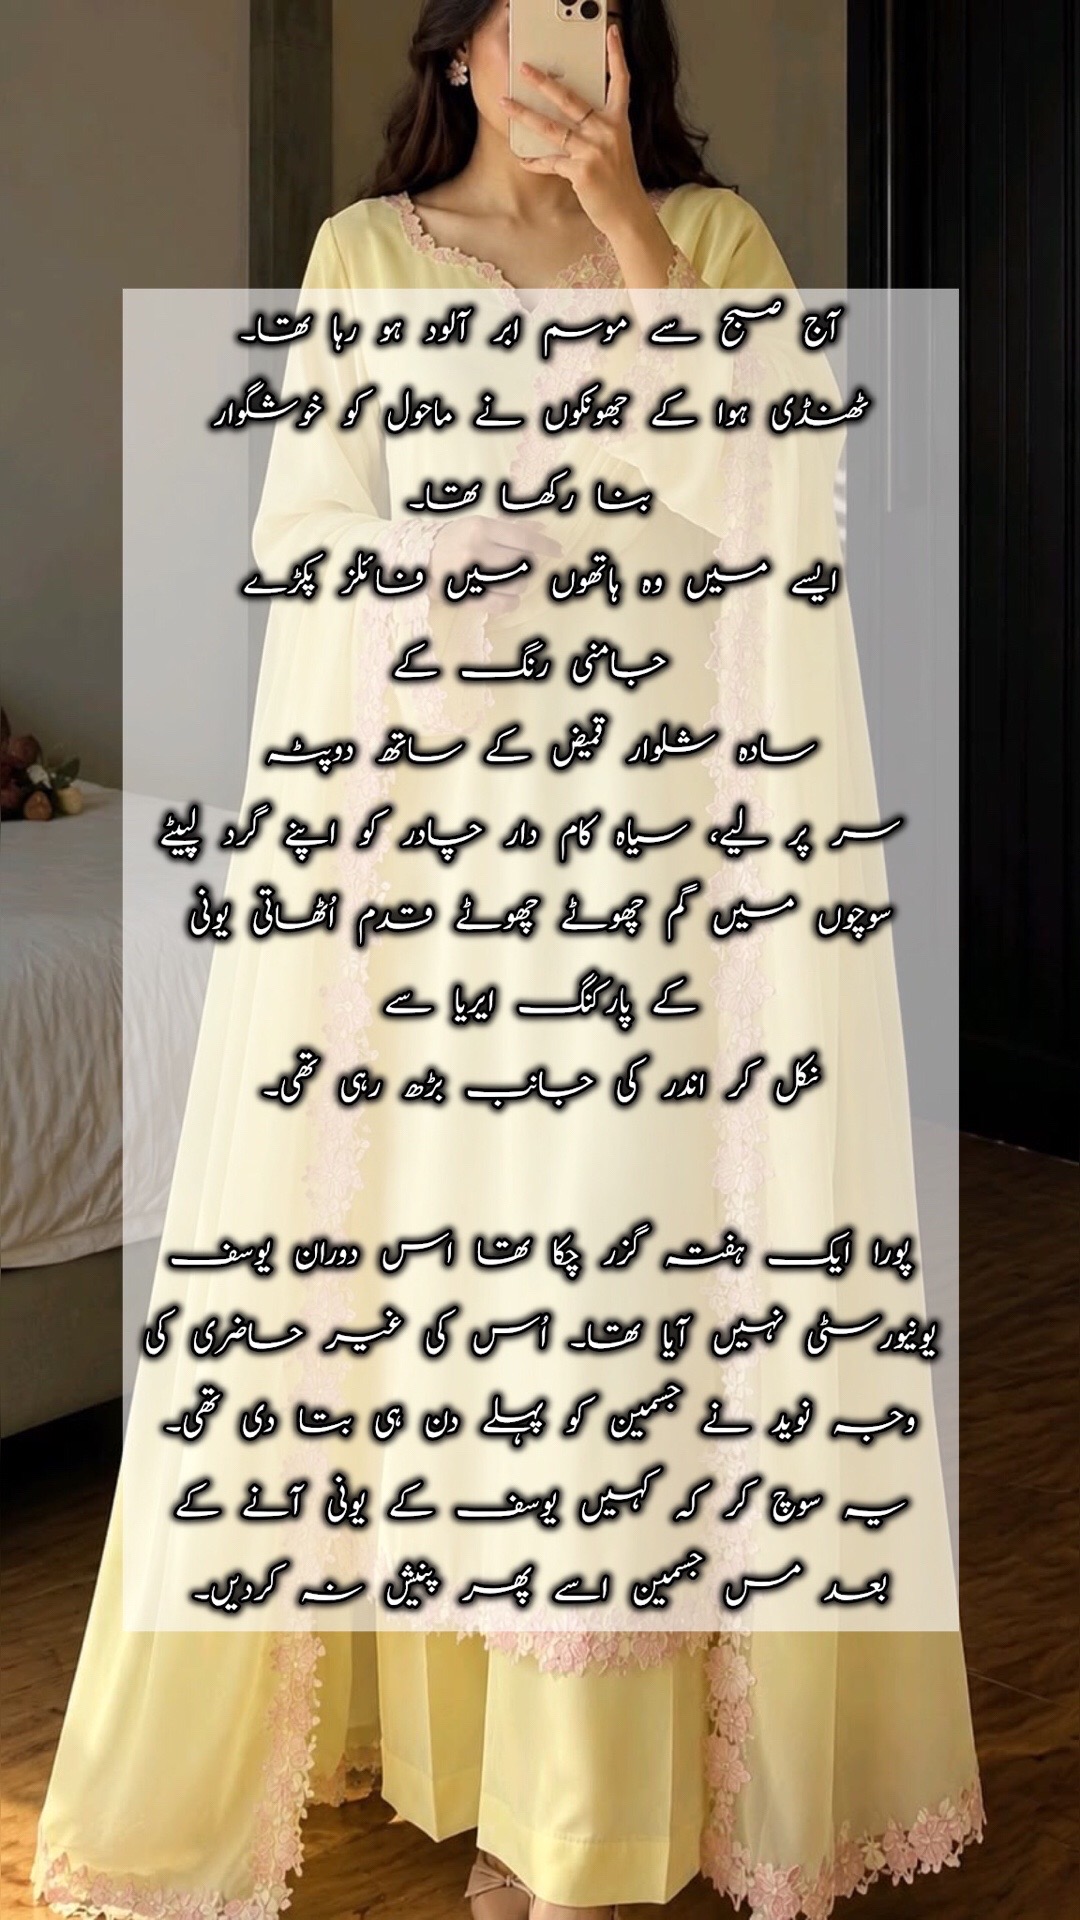 آج صبح سے موسم ابر آلود ہو رہا تھا۔
ٹھنڈی ہوا کے جھونکوں نے ماحول کو خوشگوار
بنا رکھا تھا۔
ایسے میں وہ ہاتھوں میں فائلز پکڑے
جامنی رنگ کے
سادہ شلوار قمیض کے ساتھ دوپٹہ
سر پر لیے، سیاہ کام دار چادر کو اپنے گرد لپیٹے
سوچوں میں گم چھوٹے چھوٹے قدم اُٹھاتی یونی
کے پارکنگ ایریا سے
نکل کر اندر کی جانب بڑھ رہی تھی۔
پورا ایک ہفتہ گزر چکا تھا اس دوران یوسف
یونیورسٹی نہیں آیا تھا۔ اُس کی غیر حاضری کی
وجہ نوید نے جسمین کو پہلے دن ہی بتا دی تھی۔
یہ سوچ کر کہ کہیں یوسف کے یونی آنے کے
بعد مس جسمین اسے پھر پنیش نہ کردیں۔